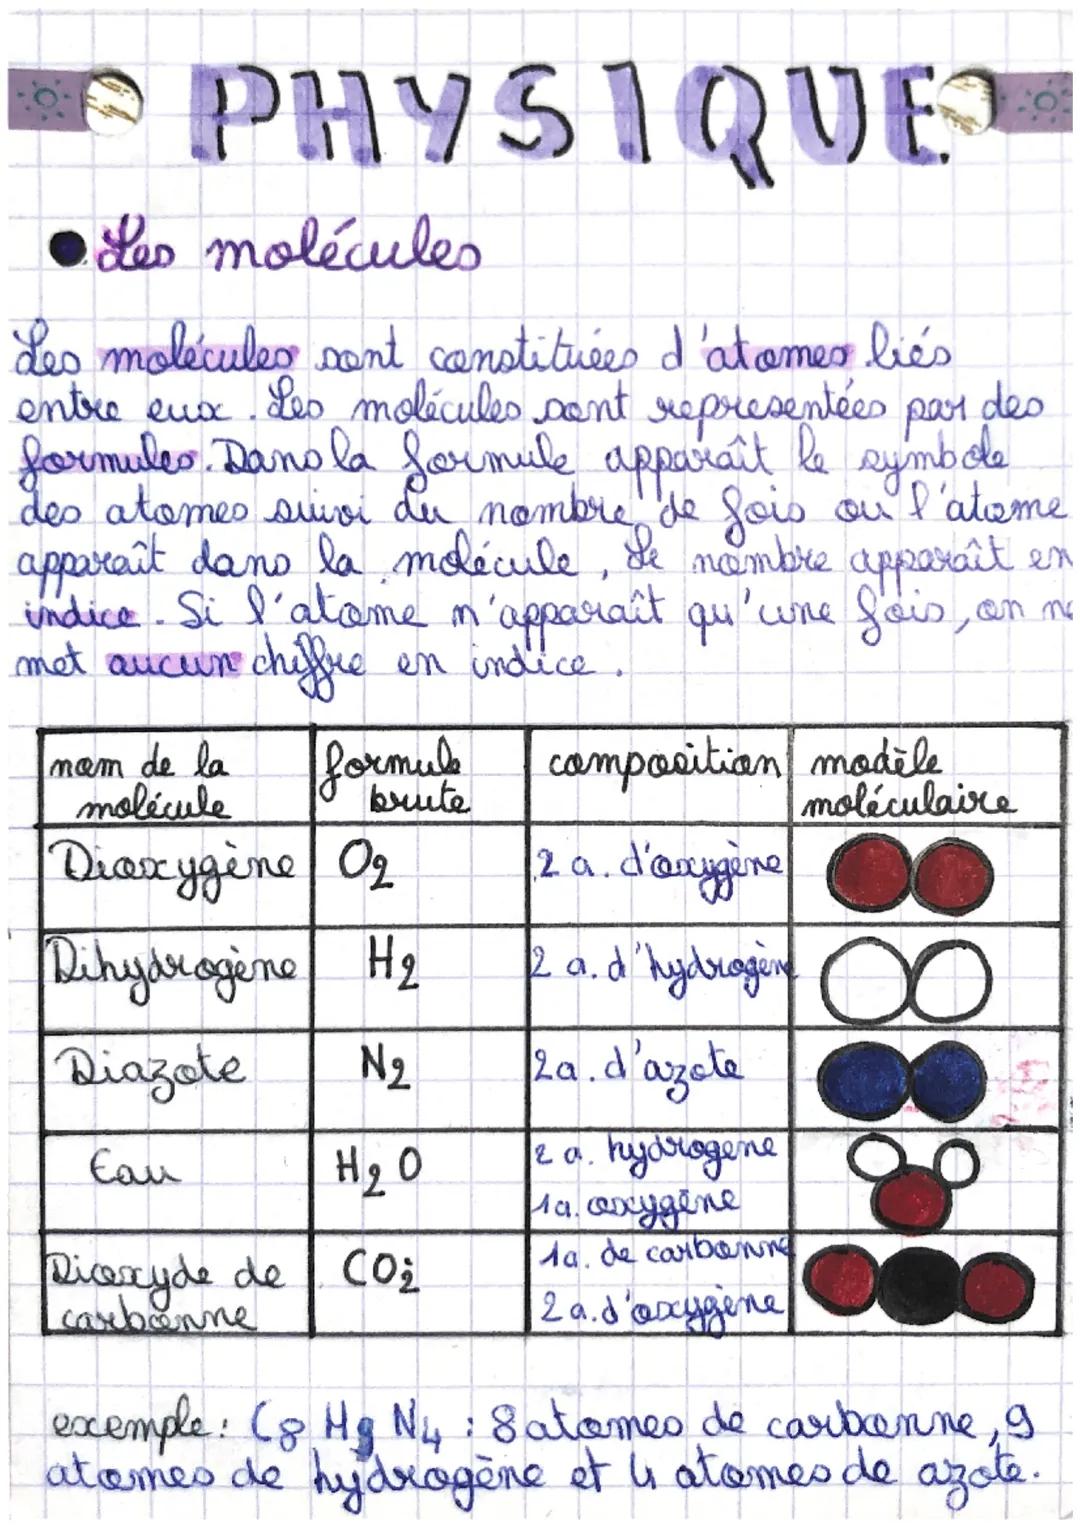 PHYSIQUE
Les molécules
Les molécules sont constituées d'atomes liés
entre eux. Les molécules sont représentées par des
formules. Dans la formule apparaît le symbole
des atomes suivi du nombre de fois ou l'atome
apparaît dans la molécule, Le nombre apparaît en
indice. Si l'atome n'apparaît qu'une fois, on ne
met aucun chiffre en indice.
nom de la molécule formule brute composition modèle moléculaire
Dioxygène O₂ 2 a. d'oxygène
Dihydrogène H₂ 2 a. d'hydrogène
Diazote N₂ 2a. d'azote
Eau H₂O 2 a. hydrogène
1a. oxygène
Dioxyde de carbonne CO₂ 1a. de carbonne
2 a. d'oxygène
exemple: C₈ H₉ N₄ : 8 atomes de carbonne, 9
atomes de hydrogène et 4 atomes de azote.